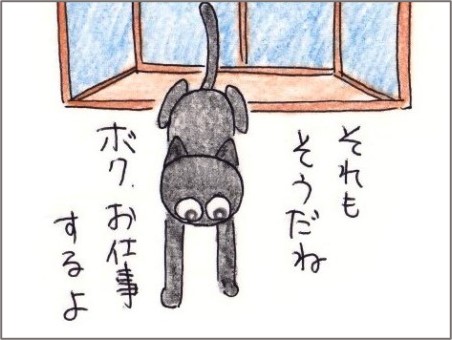 それも
そうだね
ボク、お仕事
するよ